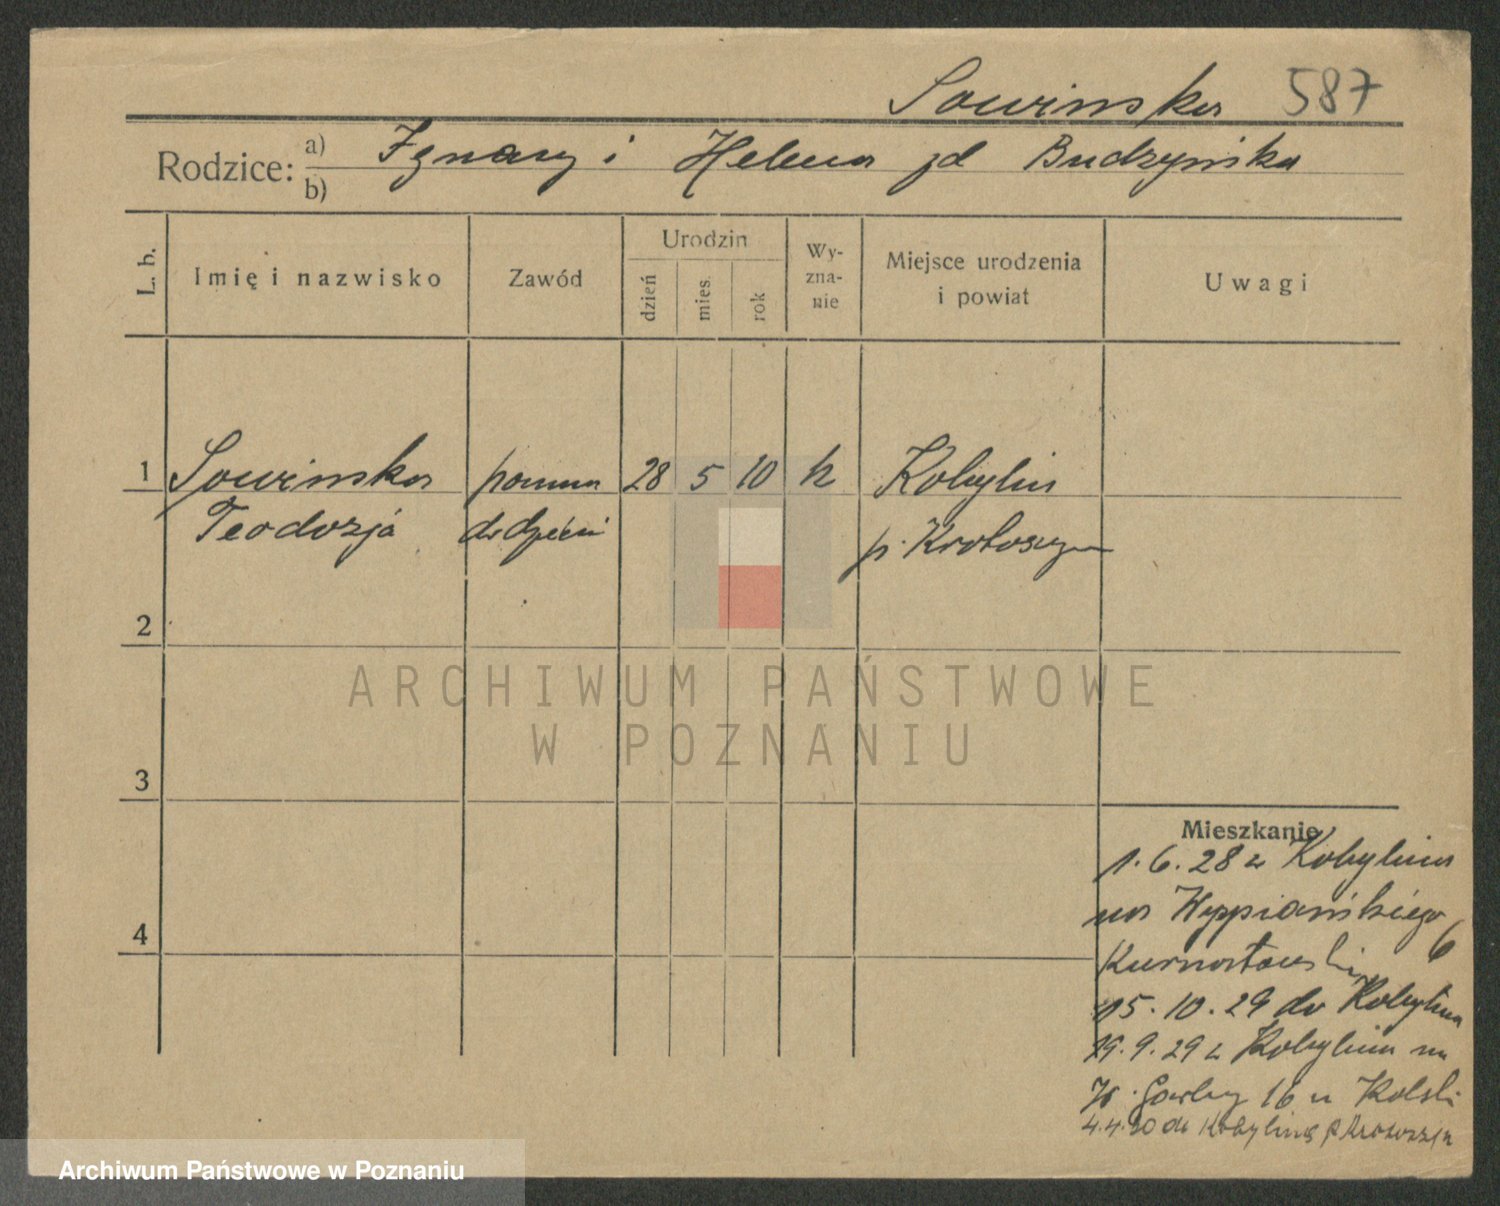 Sowinska 587
Rodzice: a) Ignacy i Helena zd Budzyńska
b)
L. b.
Imię i nazwisko
Zawód
Urodzin
dzień
mies.
rok
Wy-
zna-
nie
Miejsce urodzenia
i powiat
Uwagi
1 Sowinska panna 28 5 10 k Kobylin
Teodozja do dzieci p. Krotoszyn
2
3
4
Mieszkanie
1. 6. 28 z Kobylina
na Wyspiańskiego 6
15. 10. 29 do Kobylina
29. 9. 29 z Kobylina na
W. Garbary 16 u Kolski
4.4.30 do Kobylina p Krotoszyn
ARCHIWUM PAŃSTWOWE
W POZNANIU
Archiwum Państwowe w Poznaniu